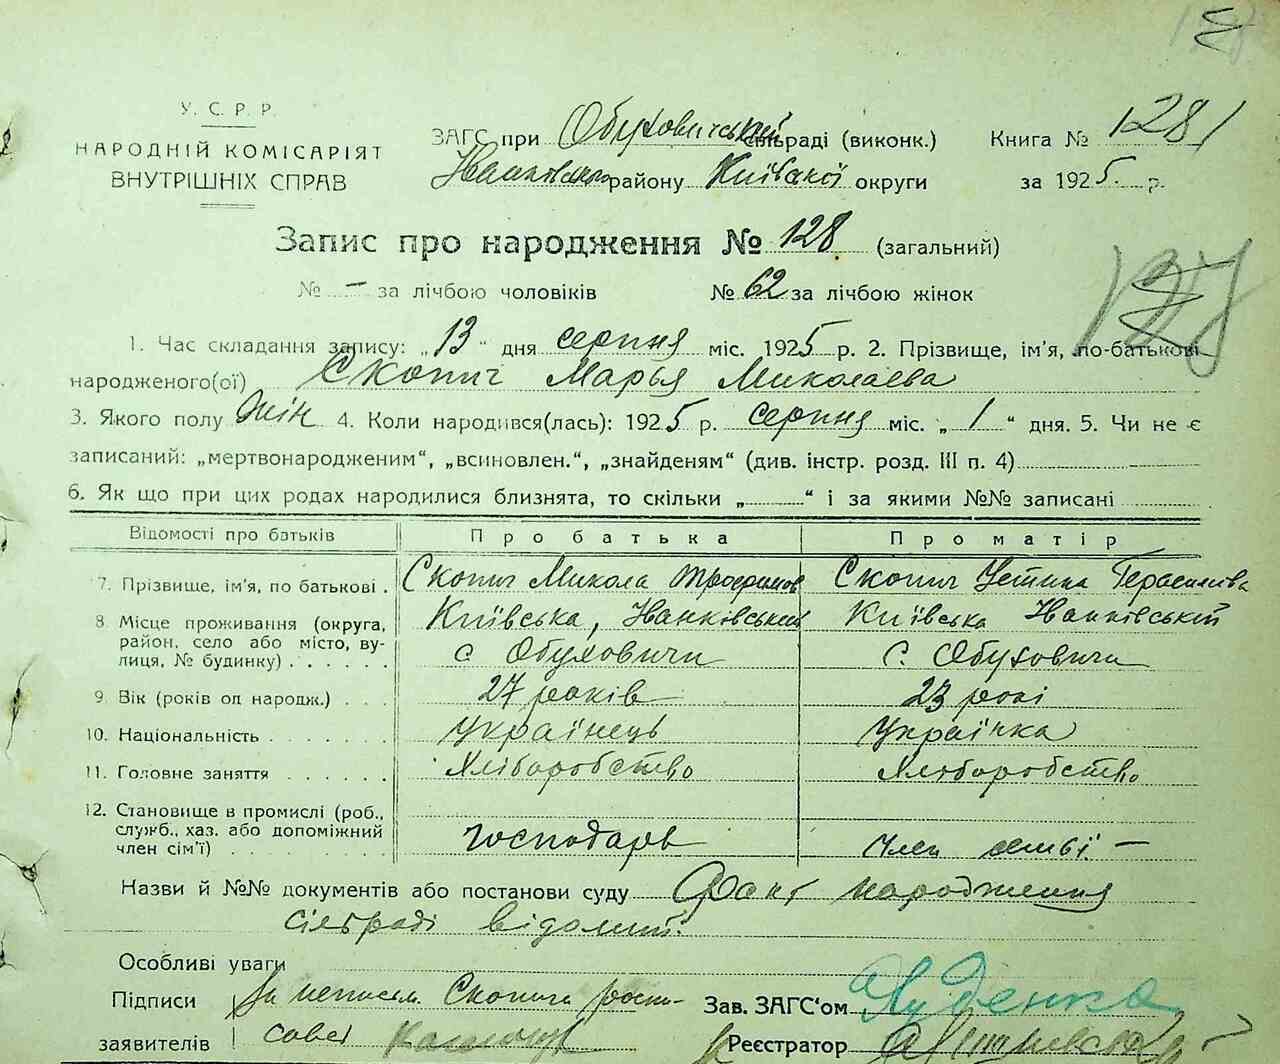 У. С. Р. Р.
НАРОДНІЙ КОМІСАРІЯТ
ВНУТРІШНІХ СПРАВ
ЗАГС при Обуховичський сільраді (виконк.) Книга № 128
Іванківського району Київської округи за 1925 р.
Запис про народження № 128 (загальний)
128
№ – за лічбою чоловіків № 62 за лічбою жінок
1. Час складання запису: „13“ дня серпня міс. 1925 р. 2. Прізвище, ім'я, по-батькові
народженого(ої) Скопич Марья Миколаєва
3. Якого полу жін 4. Коли народився(лась): 1925 р. серпня міс. „1“ дня. 5. Чи не є
записаний: „мертвонародженим“, „всиновлен.“, „знайденям“ (див. інстр. розд. III п. 4)
6. Як що при цих родах народилися близнята, то скільки „ “ і за якими №№ записані
Відомості про батьків Про батька Про матір
7. Прізвище, ім'я, по батькові . Скопич Микола Трофимов Скопич Устина Герасимова
8. Місце проживання (округа, Київська, Іванківський Київська Іванківський
район, село або місто, ву- с Обуховичи с. Обуховичи
лиця, № будинку) . . . . . .
9. Вік (років од народж.) . . . 27 років 23 рокі
10. Національність . . . . . . . українець українка
11. Головне заняття . . . . . . Хліборобство Хліборобство
12. Становище в промислі (роб.,
служб., хаз. або допоміжний господарь член семьї –
член сім'ї) . . . . . . . . .
Назви й №№ документів або постанови суду Факт народження
сільраді відомий.
Особливі уваги
Підписи За неписьм. Скопича роспи- Зав. ЗАГС'ом
заявителів Реєстратор